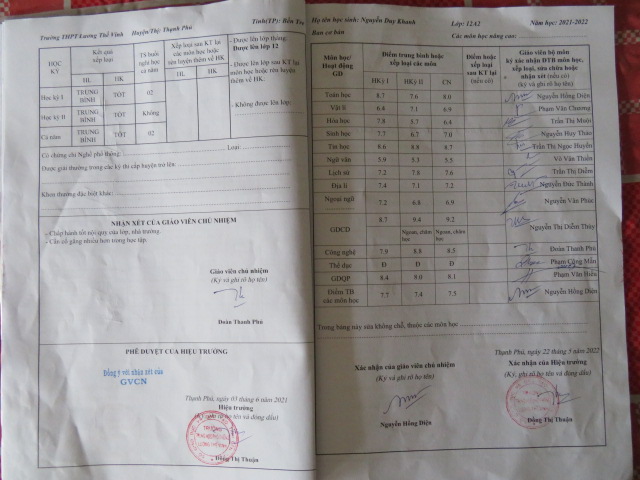 Trường THPT Lương Thế Vinh Huyện/Thị: Thạnh Phú Tỉnh(TP): Bến Tre
HỌC KỲ
Kết quả xếp loại
HL HK
TS buổi nghỉ học cả năm
Xếp loại sau KT lại các môn học hoặc rèn luyện thêm về HK
HL HK
+ Được lên lớp thẳng:
Được lên lớp 12
+ Được lên lớp sau KT lại môn học hoặc rèn luyện thêm về HK:
- Không được lên lớp:
Học kỳ I TRUNG BÌNH TỐT 02
Học kỳ II TRUNG BÌNH TỐT Không
Cả năm TRUNG BÌNH TỐT 02
Có chứng chỉ Nghề phổ thông: Loại:
Được giải thưởng trong các kỳ thi cấp huyện trở lên:
Khen thưởng đặc biệt khác:
NHẬN XÉT CỦA GIÁO VIÊN CHỦ NHIỆM
- Chấp hành tốt nội quy của lớp, nhà trường.
- Cần cố gắng nhiều hơn trong học tập.
Giáo viên chủ nhiệm
(Ký và ghi rõ họ tên)
Đoàn Thanh Phú
PHÊ DUYỆT CỦA HIỆU TRƯỞNG
Đồng ý với nhận xét của
GVCN
Thạnh Phú, ngày 03 tháng 6 năm 2021
Hiệu trưởng
(Ký, ghi rõ họ tên và đóng dấu)
Đồng Thị Thuận
Họ tên học sinh: Nguyễn Duy Khanh Lớp: 12A2 Năm học: 2021-2022
Ban cơ bản Các môn học nâng cao:
Môn học/ Hoạt động GD
Điểm trung bình hoặc xếp loại các môn
HKỳ I HKỳ II CN
Điểm hoặc xếp loại sau KT lại (nếu có)
Giáo viên bộ môn ký xác nhận ĐTB môn học, xếp loại, sửa chữa hoặc nhận xét (nếu có)
(ký và ghi rõ họ tên)
Toán học 8.7 7.6 8.0 Nguyễn Hồng Diện
Vật lí 6.4 7.1 6.9 Phạm Văn Chương
Hóa học 7.8 5.7 6.4 Trần Thị Mười
Sinh học 7.7 6.7 7.0 Nguyễn Huy Thảo
Tin học 8.6 8.8 8.7 Trần Thị Ngọc Huyền
Ngữ văn 5.9 5.3 5.5 Võ Văn Thiển
Lịch sử 7.2 7.8 7.6 Trần Thị Diễm
Địa lí 7.4 7.1 7.2 Nguyễn Đức Thành
Ngoại ngữ 7.2 6.8 6.9 Nguyễn Văn Phúc
GDCD 8.7 9.4 9.2 Nguyễn Thị Diễm Thúy
Ngoan, chăm học Ngoan, chăm học
Công nghệ 7.9 8.8 8.5 Đoàn Thanh Phú
Thể dục Đ Đ Đ Phạm Công Mẫn
GDQP 8.4 8.0 8.1 Phạm Văn Hiếu
Điểm TB các môn học 7.7 7.4 7.5 Nguyễn Hồng Diện
Trong bảng này sửa không chỗ, thuộc các môn học
Xác nhận của giáo viên chủ nhiệm
(Ký và ghi rõ họ tên)
Nguyễn Hồng Diện
Thạnh Phú, ngày 22 tháng 5 năm 2022
Xác nhận của Hiệu trưởng
(Ký, ghi rõ họ tên và đóng dấu)
Đồng Thị Thuận